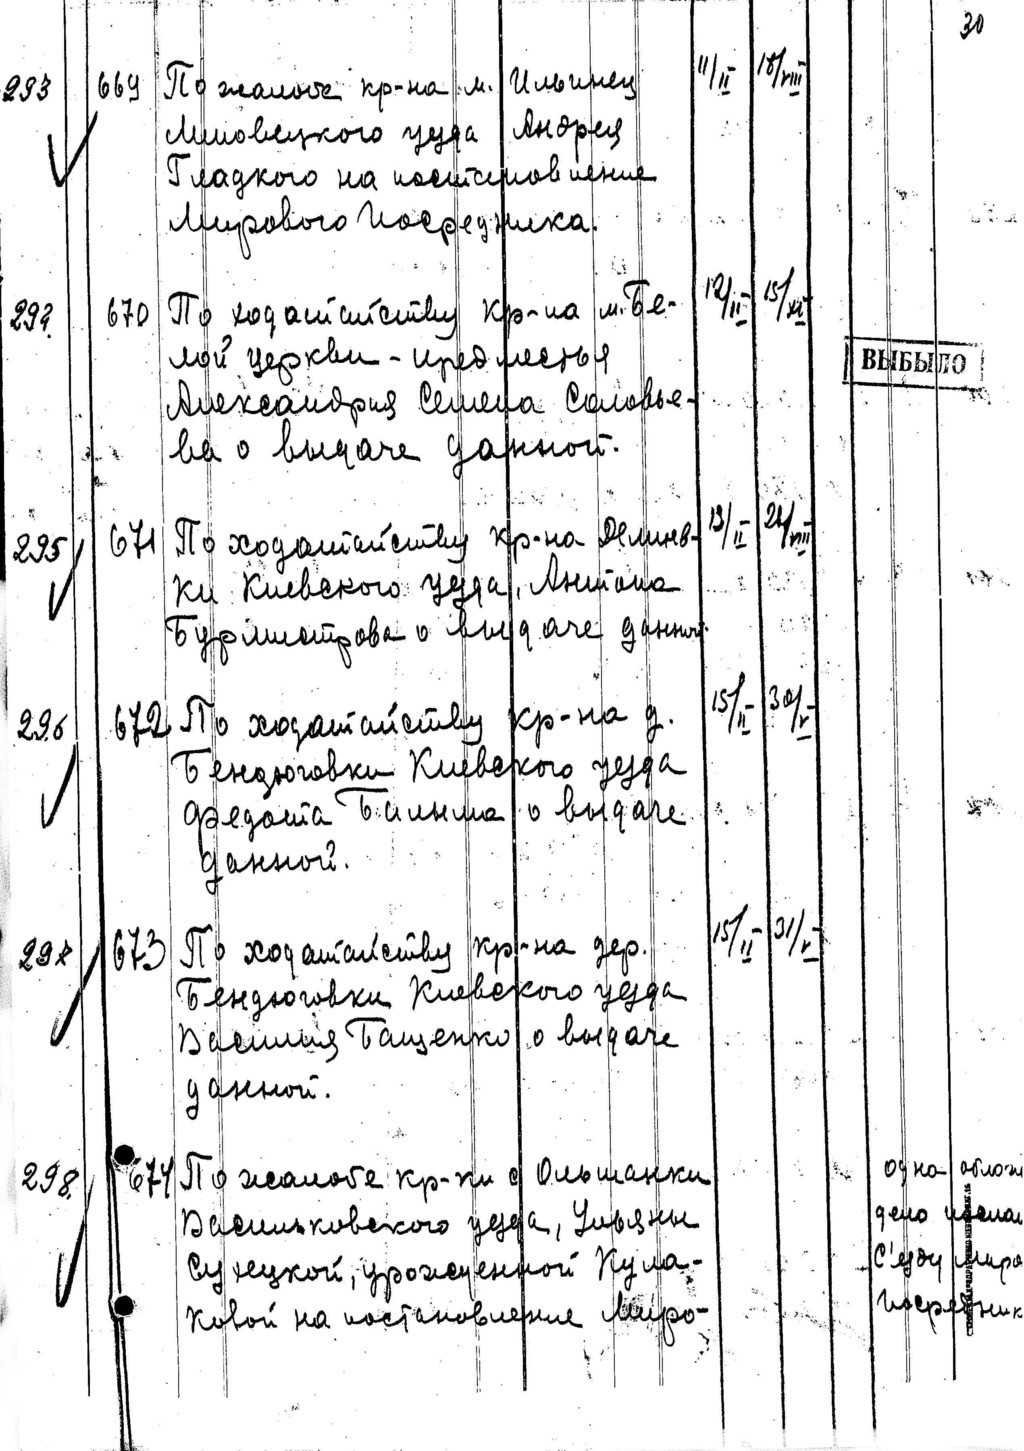 30
293 669 По жалобе кр-на м. Ильинец 11/II 18/VIII
Липовецкого уезда Андрея
Гладкого на постановление
Мирового Посредника.
670 По ходатайству кр-на м. Бе- 12/II 15/XI
лой церкви - предместья
Александрия Семена Соловье-
ва о выдаче данной.
ВЫБЫЛО
295 671 По ходатайству кр-на Демиев- 13/II 21/VIII
ки Киевского уезда, Антона
Бурмистрова о выдаче данной.
296 672 По ходатайству кр-на д. 15/II 30/V
Бендюговки Киевского уезда
Федота о выдаче
данной.
297 673 По ходатайству кр-на дер. 15/II 31/V
Бендюговки Киевского уезда
Василия Тащенко о выдаче
данной.
298. 674 По жалобе кр-ки с Ольшанки одна облож
Васильковского уезда, Ульяны дело послан
Сухецкой, урожденной Кула- С'езду Миро
ковой на постановление Миро- Посредник